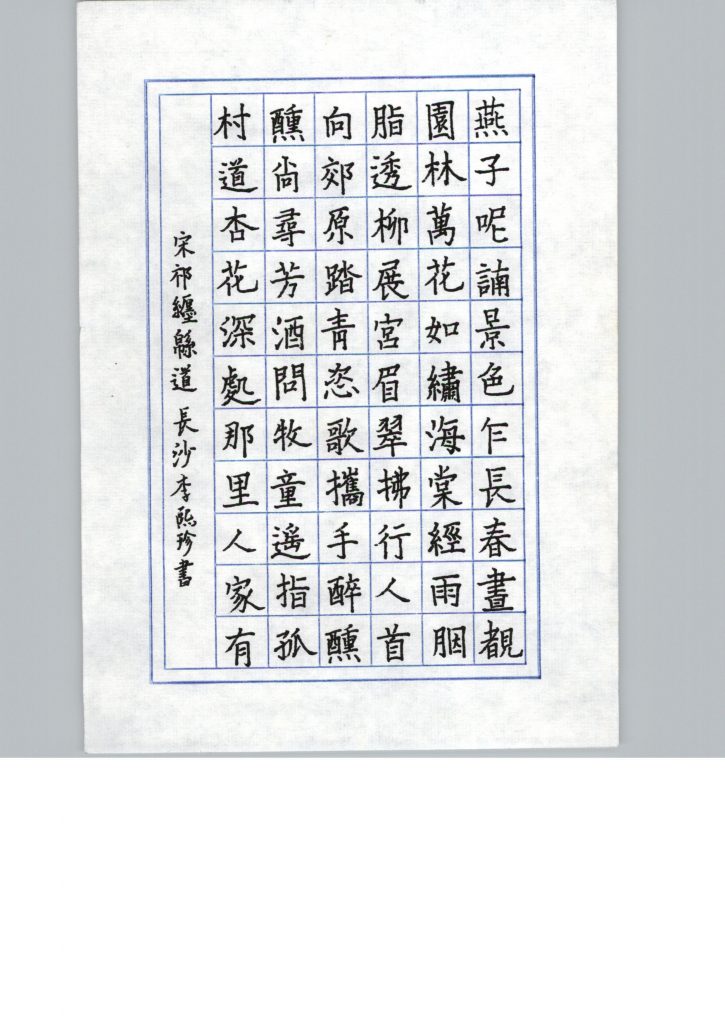 燕子呢諵景色乍長春晝覩
園林萬花如繡海棠經雨胭
脂透柳展宮眉翠拂行人首
向郊原踏青恣歌攜手醉醺
醺尙尋芳酒問牧童遥指孤
村道杏花深處那里人家有
宋祁纏緜道 長沙李熙珍書